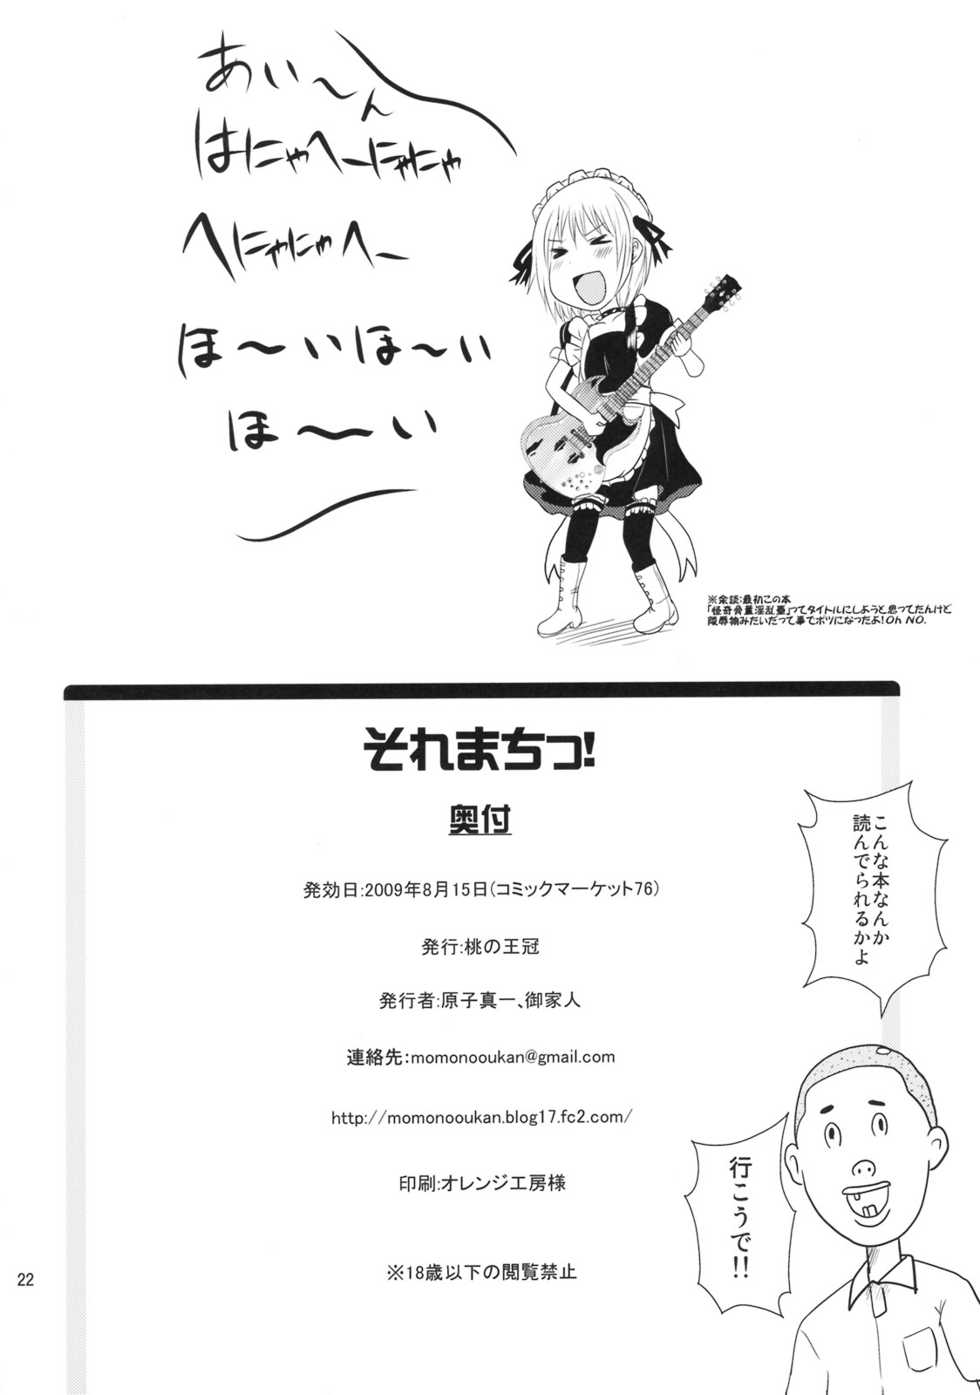 あい〜ん
はにゃへーにゃにゃ
へにゃにゃへー
ほ〜いほ〜い
ほ〜い
※余談:最初この本
「怪奇骨董淫乱壷」ってタイトルにしようと思ってたんけど
陵辱物みたいだって事でボツになったよ!Oh NO.
それまちっ!
奥付
発効日:2009年8月15日(コミックマーケット76)
発行:桃の王冠
発行者:原子真一、御家人
連絡先:momonooukan@gmail.com
http://momonooukan.blog17.fc2.com/
印刷:オレンジ工房様
※18歳以下の閲覧禁止
こんな本なんか
読んでられるかよ
行こうで!!
22